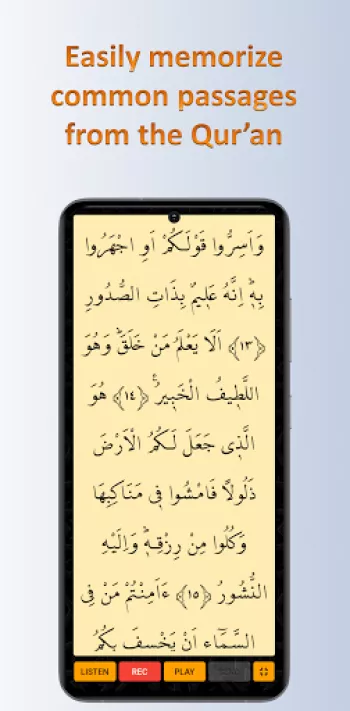 Easily memorize
common passages
from the Qur’an
وَاَسِرُّوا قَوْلَكُمْ اَوِ اجْهَرُوا
بِهِۜ اِنَّهُ عَلِيمٌ بِذَاتِ الصُّدُورِ
﴿١٣﴾ اَلَا يَعْلَمُ مَنْ خَلَقَۜ وَهُوَ
اللَّطِيفُ الْخَبِيرُ۟ ﴿١٤﴾ هُوَ
الَّذِى جَعَلَ لَكُمُ الْاَرْضَ
ذَلُولًا فَامْشُوا فِى مَنَاكِبِهَا
وَكُلُوا مِنْ رِزْقِهِۜ وَاِلَيْهِ
النُّشُورُ ﴿١٥﴾ ءَاَمِنْتُمْ مَنْ فِى
السَّمَٓاءِ اَنْ يَخْسِفَ بِكُمُ
LISTEN REC PLAY